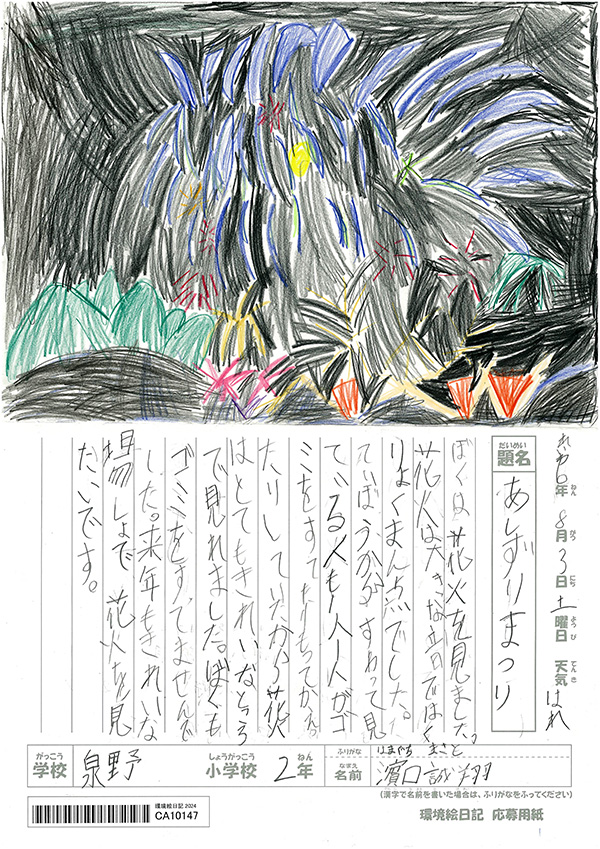 れいわ6年 8月3日 土曜日 天気 はれ
ねん がつ にち ようび てんき
だいめい
題名 あしずりまつり
ぼくは花火を見ました。
花火は大きな音ではく
りょくまん点でした。
ていぼうからすわって見
ている人も一人一人がゴ
ミをすてたりもってかえっ
たりしていたから花火
はとてもきれいなところ
で見れました。ぼくも
ゴミをすてませんで
した。来年もきれいな
場しょで花火を見
たいです。
がっこう しょうがっこう ねん ふりがな はまぐち まさと
学校 泉野 小学校 2年 なまえ 名前 濱口誠翔
(漢字で名前を書いた場合は、ふりがなをふってください)
環境絵日記 2024
CA10147
環境絵日記 応募用紙